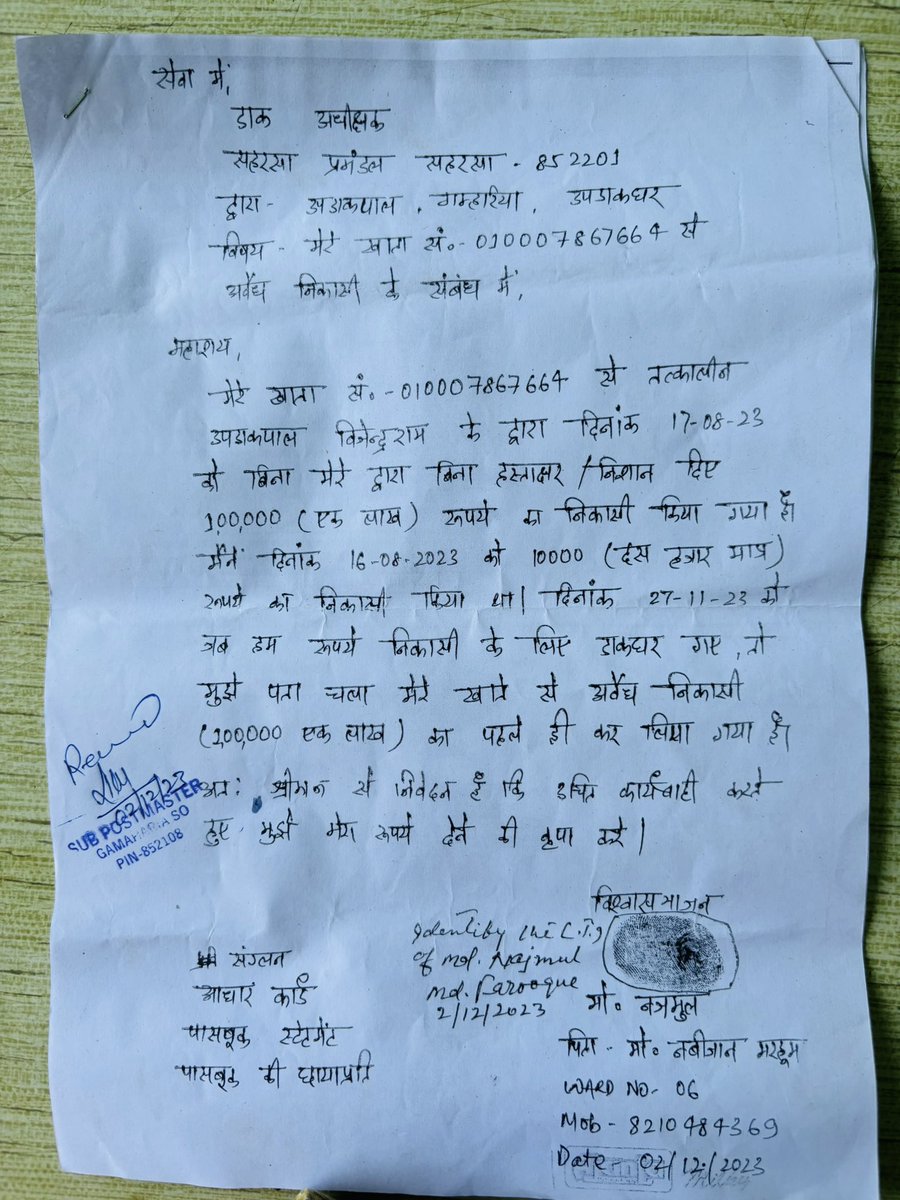 सेवा में,
डाक अधीक्षक
सहरसा प्रमंडल सहरसा - 852201
द्वारा - उपडाकपाल, गम्हारिया, उपडाकघर
विषय - मेरे खाता सं०- 010007867664 से
अवैध निकासी के संबंध में,
महाशय,
मेरे खाता सं०- 010007867664 से तत्कालीन
उपडाकपाल बिजेन्द्रराम के द्वारा दिनांक 17-08-23
को बिना मेरे द्वारा बिना हस्ताक्षर / निशान दिए
1,00,000 (एक लाख) रूपये का निकासी किया गया है।
मैंने दिनांक 16-08-2023 को 10000 (दस हजार मात्र)
रूपये का निकासी किया था। दिनांक 27-11-23 को
जब हम रूपये निकासी के लिए डाकघर गए, तो
मुझे पता चला मेरे खाते से अवैध निकासी
(1,00,000 एक लाख) का पहले ही कर लिया गया है।
अतः श्रीमान से निवेदन है कि उचित कार्यवाही करते
हुए मुझे मेरा रूपये देने की कृपा करें।
02/12/23
SUB POSTMASTER
GAMAHARIA SO
PIN-852108
विश्वासभाजन
Identify the L.T.I
of Md. Najmul
Md. Farooque
2/12/2023
मो० नजमुल
पिता - मो० नबीजान मरहूम
WARD NO- 06
Mob - 8210484369
Date 02/12/2023
संग्लन
आधार कार्ड
पासबूक स्टेटमेंट
पासबूक की छायाप्रति